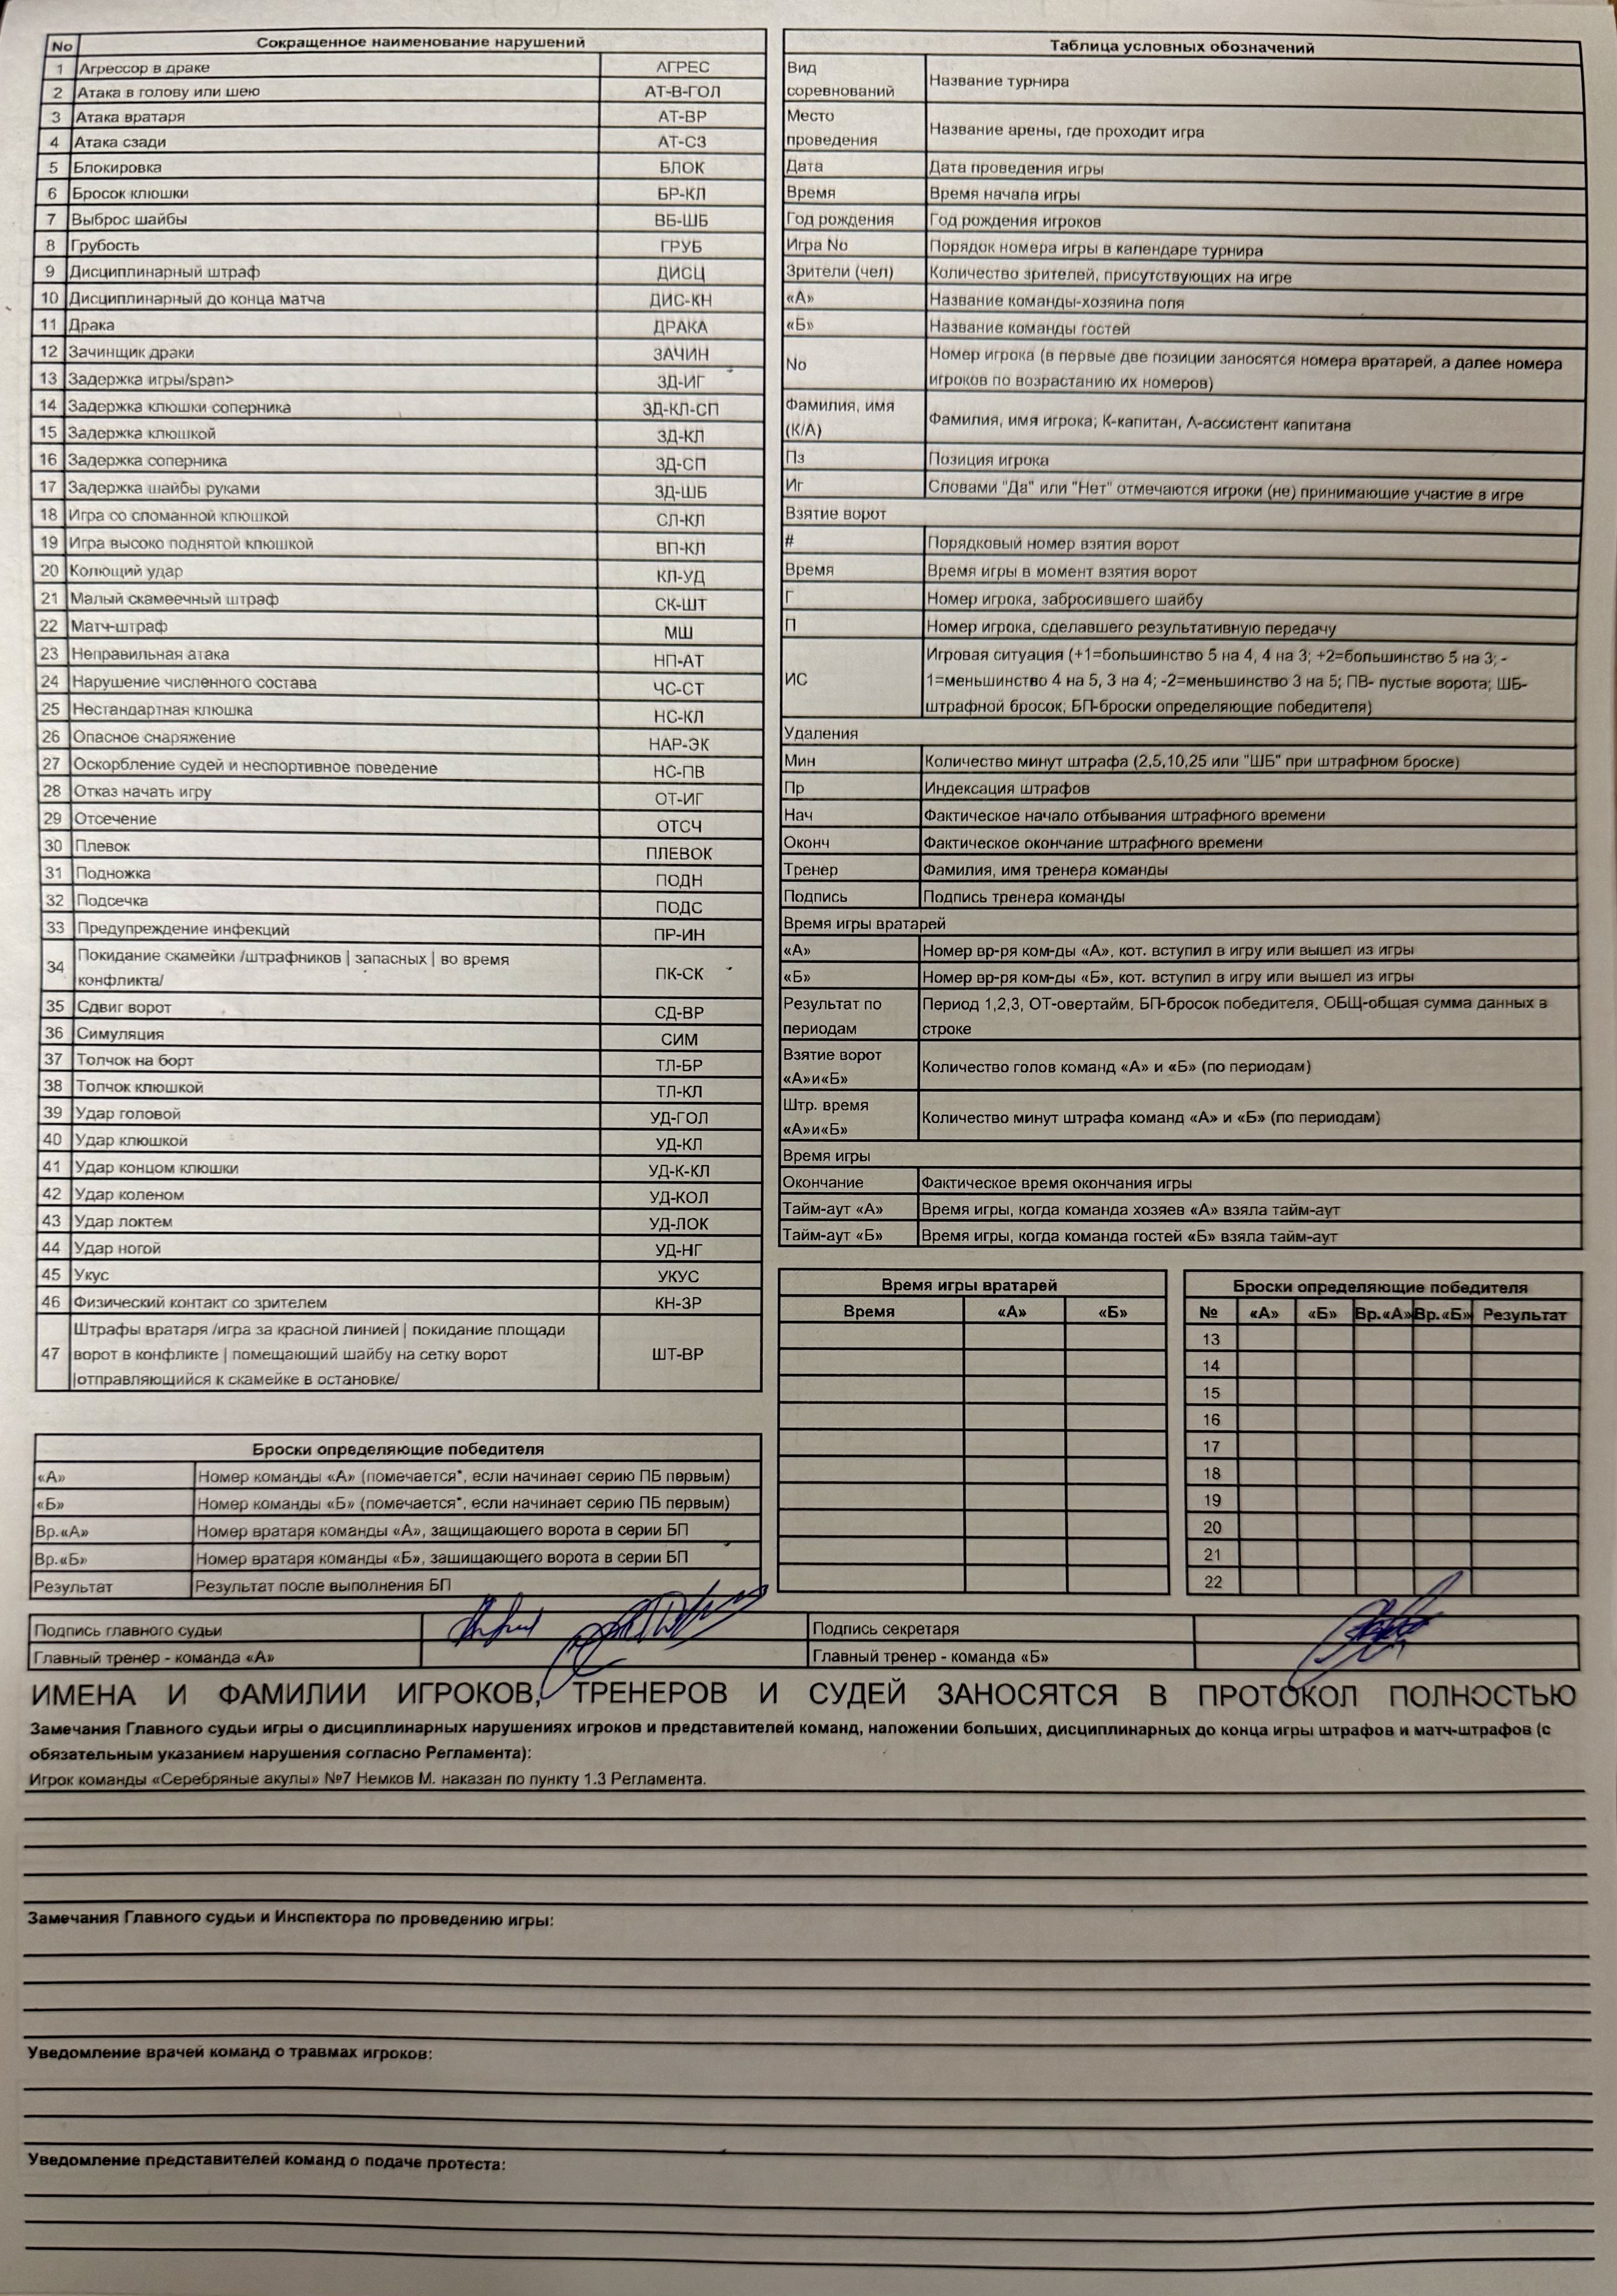 No Сокращенное наименование нарушений
1 Агрессор в драке АГРЕС
2 Атака в голову или шею АТ-В-ГОЛ
3 Атака вратаря АТ-ВР
4 Атака сзади АТ-СЗ
5 Блокировка БЛОК
6 Бросок клюшки БР-КЛ
7 Выброс шайбы ВБ-ШБ
8 Грубость ГРУБ
9 Дисциплинарный штраф ДИСЦ
10 Дисциплинарный до конца матча ДИС-КН
11 Драка ДРАКА
12 Зачинщик драки ЗАЧИН
13 Задержка игры/span> ЗД-ИГ
14 Задержка клюшки соперника ЗД-КЛ-СП
15 Задержка клюшкой ЗД-КЛ
16 Задержка соперника ЗД-СП
17 Задержка шайбы руками ЗД-ШБ
18 Игра со сломанной клюшкой СЛ-КЛ
19 Игра высоко поднятой клюшкой ВП-КЛ
20 Колющий удар КЛ-УД
21 Малый скамеечный штраф СК-ШТ
22 Матч-штраф МШ
23 Неправильная атака НП-АТ
24 Нарушение численного состава ЧС-СТ
25 Нестандартная клюшка НС-КЛ
26 Опасное снаряжение НАР-ЭК
27 Оскорбление судей и неспортивное поведение НС-ПВ
28 Отказ начать игру ОТ-ИГ
29 Отсечение ОТСЧ
30 Плевок ПЛЕВОК
31 Подножка ПОДН
32 Подсечка ПОДС
33 Предупреждение инфекций ПР-ИН
34 Покидание скамейки /штрафников | запасных | во время
конфликта/ ПК-СК
35 Сдвиг ворот СД-ВР
36 Симуляция СИМ
37 Толчок на борт ТЛ-БР
38 Толчок клюшкой ТЛ-КЛ
39 Удар головой УД-ГОЛ
40 Удар клюшкой УД-КЛ
41 Удар концом клюшки УД-К-КЛ
42 Удар коленом УД-КОЛ
43 Удар локтем УД-ЛОК
44 Удар ногой УД-НГ
45 Укус УКУС
46 Физический контакт со зрителем КН-ЗР
Штрафы вратаря /игра за красной линией | покидание площади
47 ворот в конфликте | помещающий шайбу на сетку ворот ШТ-ВР
|отправляющийся к скамейке в остановке/
Броски определяющие победителя
«А» Номер команды «А» (помечается*, если начинает серию ПБ первым)
«Б» Номер команды «Б» (помечается*, если начинает серию ПБ первым)
Вр.«А» Номер вратаря команды «А», защищающего ворота в серии БП
Вр.«Б» Номер вратаря команды «Б», защищающего ворота в серии БП
Результат Результат после выполнения БП
Таблица условных обозначений
Вид
соревнований Название турнира
Место
проведения Название арены, где проходит игра
Дата Дата проведения игры
Время Время начала игры
Год рождения Год рождения игроков
Игра No Порядок номера игры в календаре турнира
Зрители (чел) Количество зрителей, присутствующих на игре
«А» Название команды-хозяина поля
«Б» Название команды гостей
No Номер игрока (в первые две позиции заносятся номера вратарей, а далее номера
игроков по возрастанию их номеров)
Фамилия, имя
(К/А) Фамилия, имя игрока; К-капитан, А-ассистент капитана
Пз Позиция игрока
Иг Словами "Да" или "Нет" отмечаются игроки (не) принимающие участие в игре
Взятие ворот
# Порядковый номер взятия ворот
Время Время игры в момент взятия ворот
Г Номер игрока, забросившего шайбу
П Номер игрока, сделавшего результативную передачу
Игровая ситуация (+1=большинство 5 на 4, 4 на 3; +2=большинство 5 на 3; -
ИС 1=меньшинство 4 на 5, 3 на 4; -2=меньшинство 3 на 5; ПВ- пустые ворота; ШБ-
штрафной бросок; БП-броски определяющие победителя)
Удаления
Мин Количество минут штрафа (2,5,10,25 или "ШБ" при штрафном броске)
Пр Индексация штрафов
Нач Фактическое начало отбывания штрафного времени
Оконч Фактическое окончание штрафного времени
Тренер Фамилия, имя тренера команды
Подпись Подпись тренера команды
Время игры вратарей
«А» Номер вр-ря ком-ды «А», кот. вступил в игру или вышел из игры
«Б» Номер вр-ря ком-ды «Б», кот. вступил в игру или вышел из игры
Результат по Период 1,2,3, ОТ-овертайм, БП-бросок победителя, ОБЩ-общая сумма данных в
периодам строке
Взятие ворот
«А»и«Б» Количество голов команд «А» и «Б» (по периодам)
Штр. время
«А»и«Б» Количество минут штрафа команд «А» и «Б» (по периодам)
Время игры
Окончание Фактическое время окончания игры
Тайм-аут «А» Время игры, когда команда хозяев «А» взяла тайм-аут
Тайм-аут «Б» Время игры, когда команда гостей «Б» взяла тайм-аут
Время игры вратарей
Время «А» «Б»
Броски определяющие победителя
№ «А» «Б» Вр.«А» Вр.«Б» Результат
13
14
15
16
17
18
19
20
21
22
Подпись главного судьи Подпись секретаря
Главный тренер - команда «А» Главный тренер - команда «Б»
ИМЕНА И ФАМИЛИИ ИГРОКОВ, ТРЕНЕРОВ И СУДЕЙ ЗАНОСЯТСЯ В ПРОТОКОЛ ПОЛНОСТЬЮ
Замечания Главного судьи игры о дисциплинарных нарушениях игроков и представителей команд, наложении больших, дисциплинарных до конца игры штрафов и матч-штрафов (с
обязательным указанием нарушения согласно Регламента):
Игрок команды «Серебряные акулы» №7 Немков М. наказан по пункту 1.3 Регламента.
Замечания Главного судьи и Инспектора по проведению игры:
Уведомление врачей команд о травмах игроков:
Уведомление представителей команд о подаче протеста: